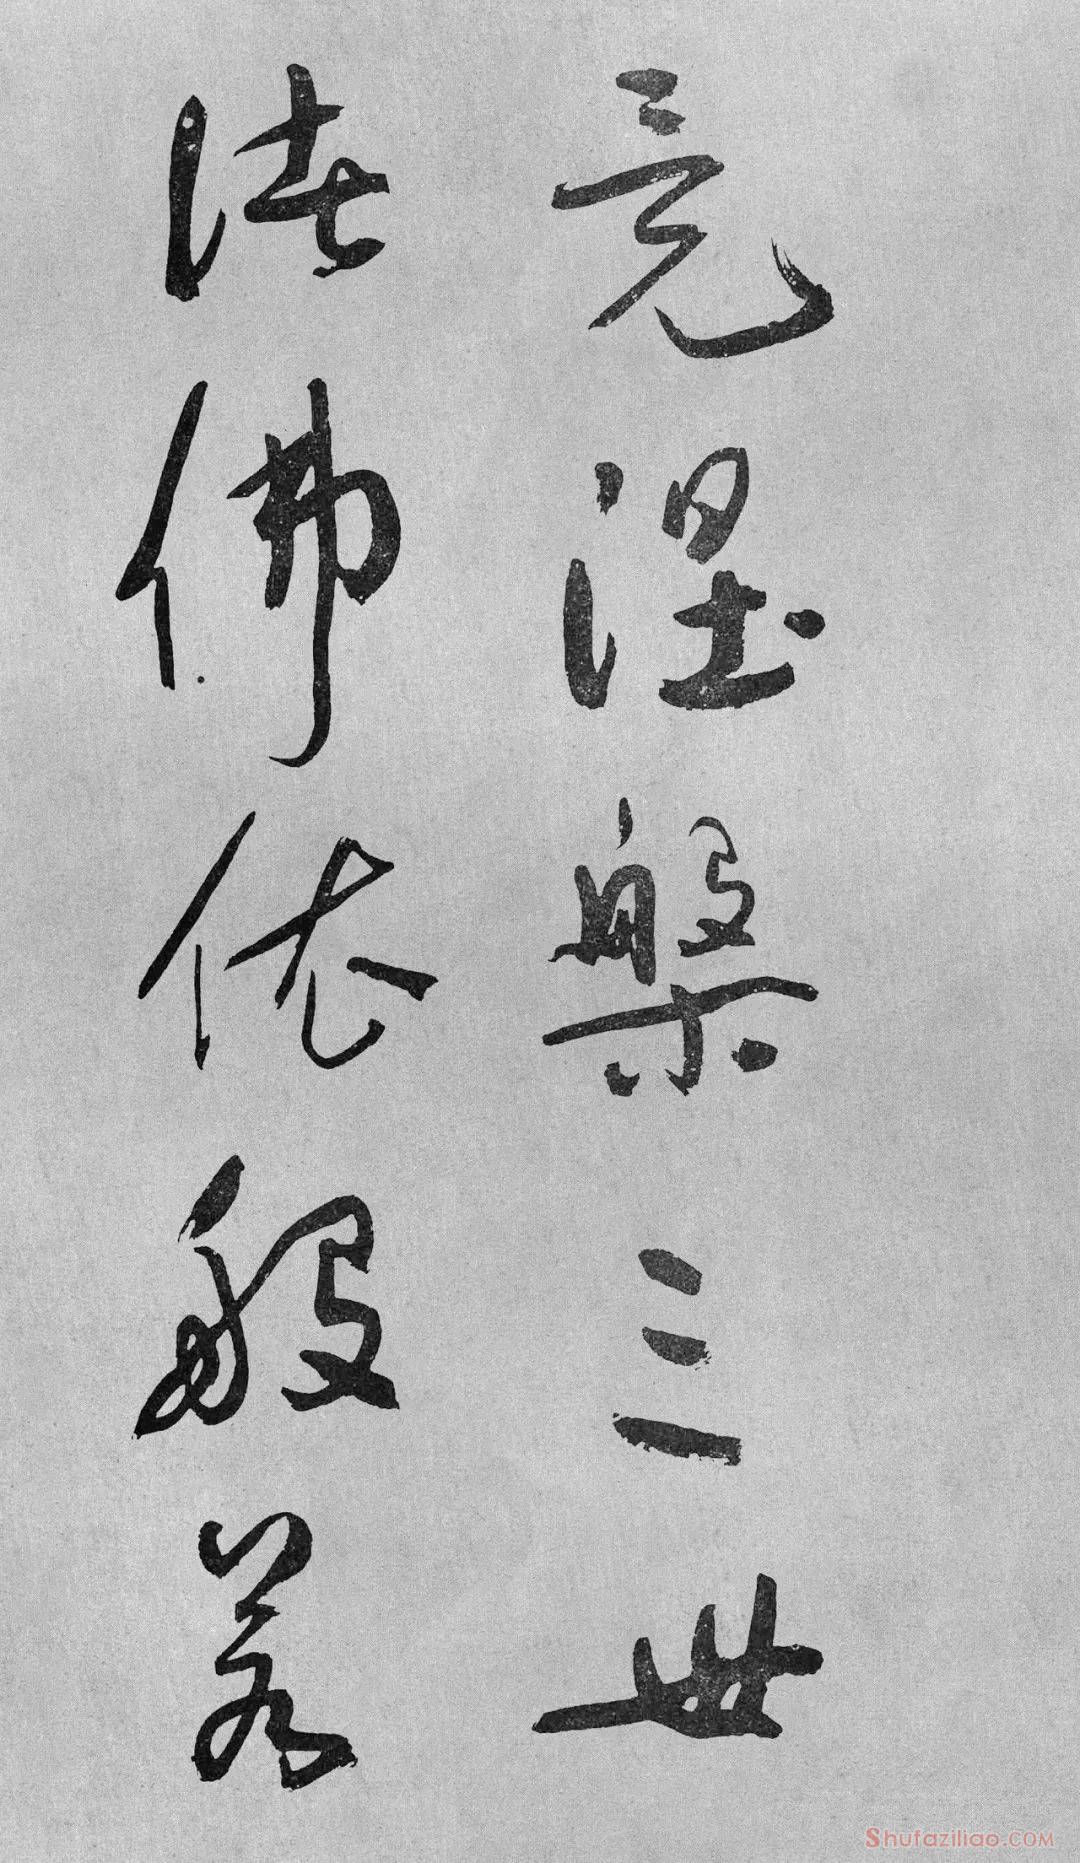 竟涅槃三世
诸佛依般若
Shufaziliao.COM